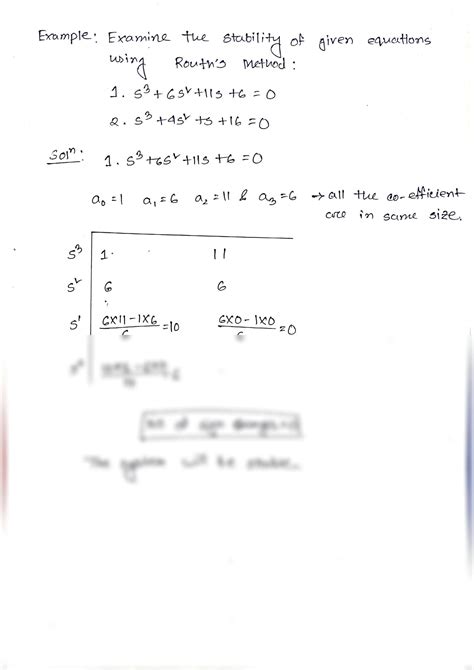 Example: Examine the stability of given equations
using Routh's Method:
1. s³ + 6s² + 11s + 6 = 0
2. s³ + 4s² + s + 16 = 0
Solⁿ: 1. s³ + 6s² + 11s + 6 = 0
a₀ = 1 a₁ = 6 a₂ = 11 & a₃ = 6 → all the co-efficient
are in same size.
s³ 1 11
s² 6 6
s¹ (6×11 - 1×6)/6 = 10 (6×0 - 1×0)/6 = 0